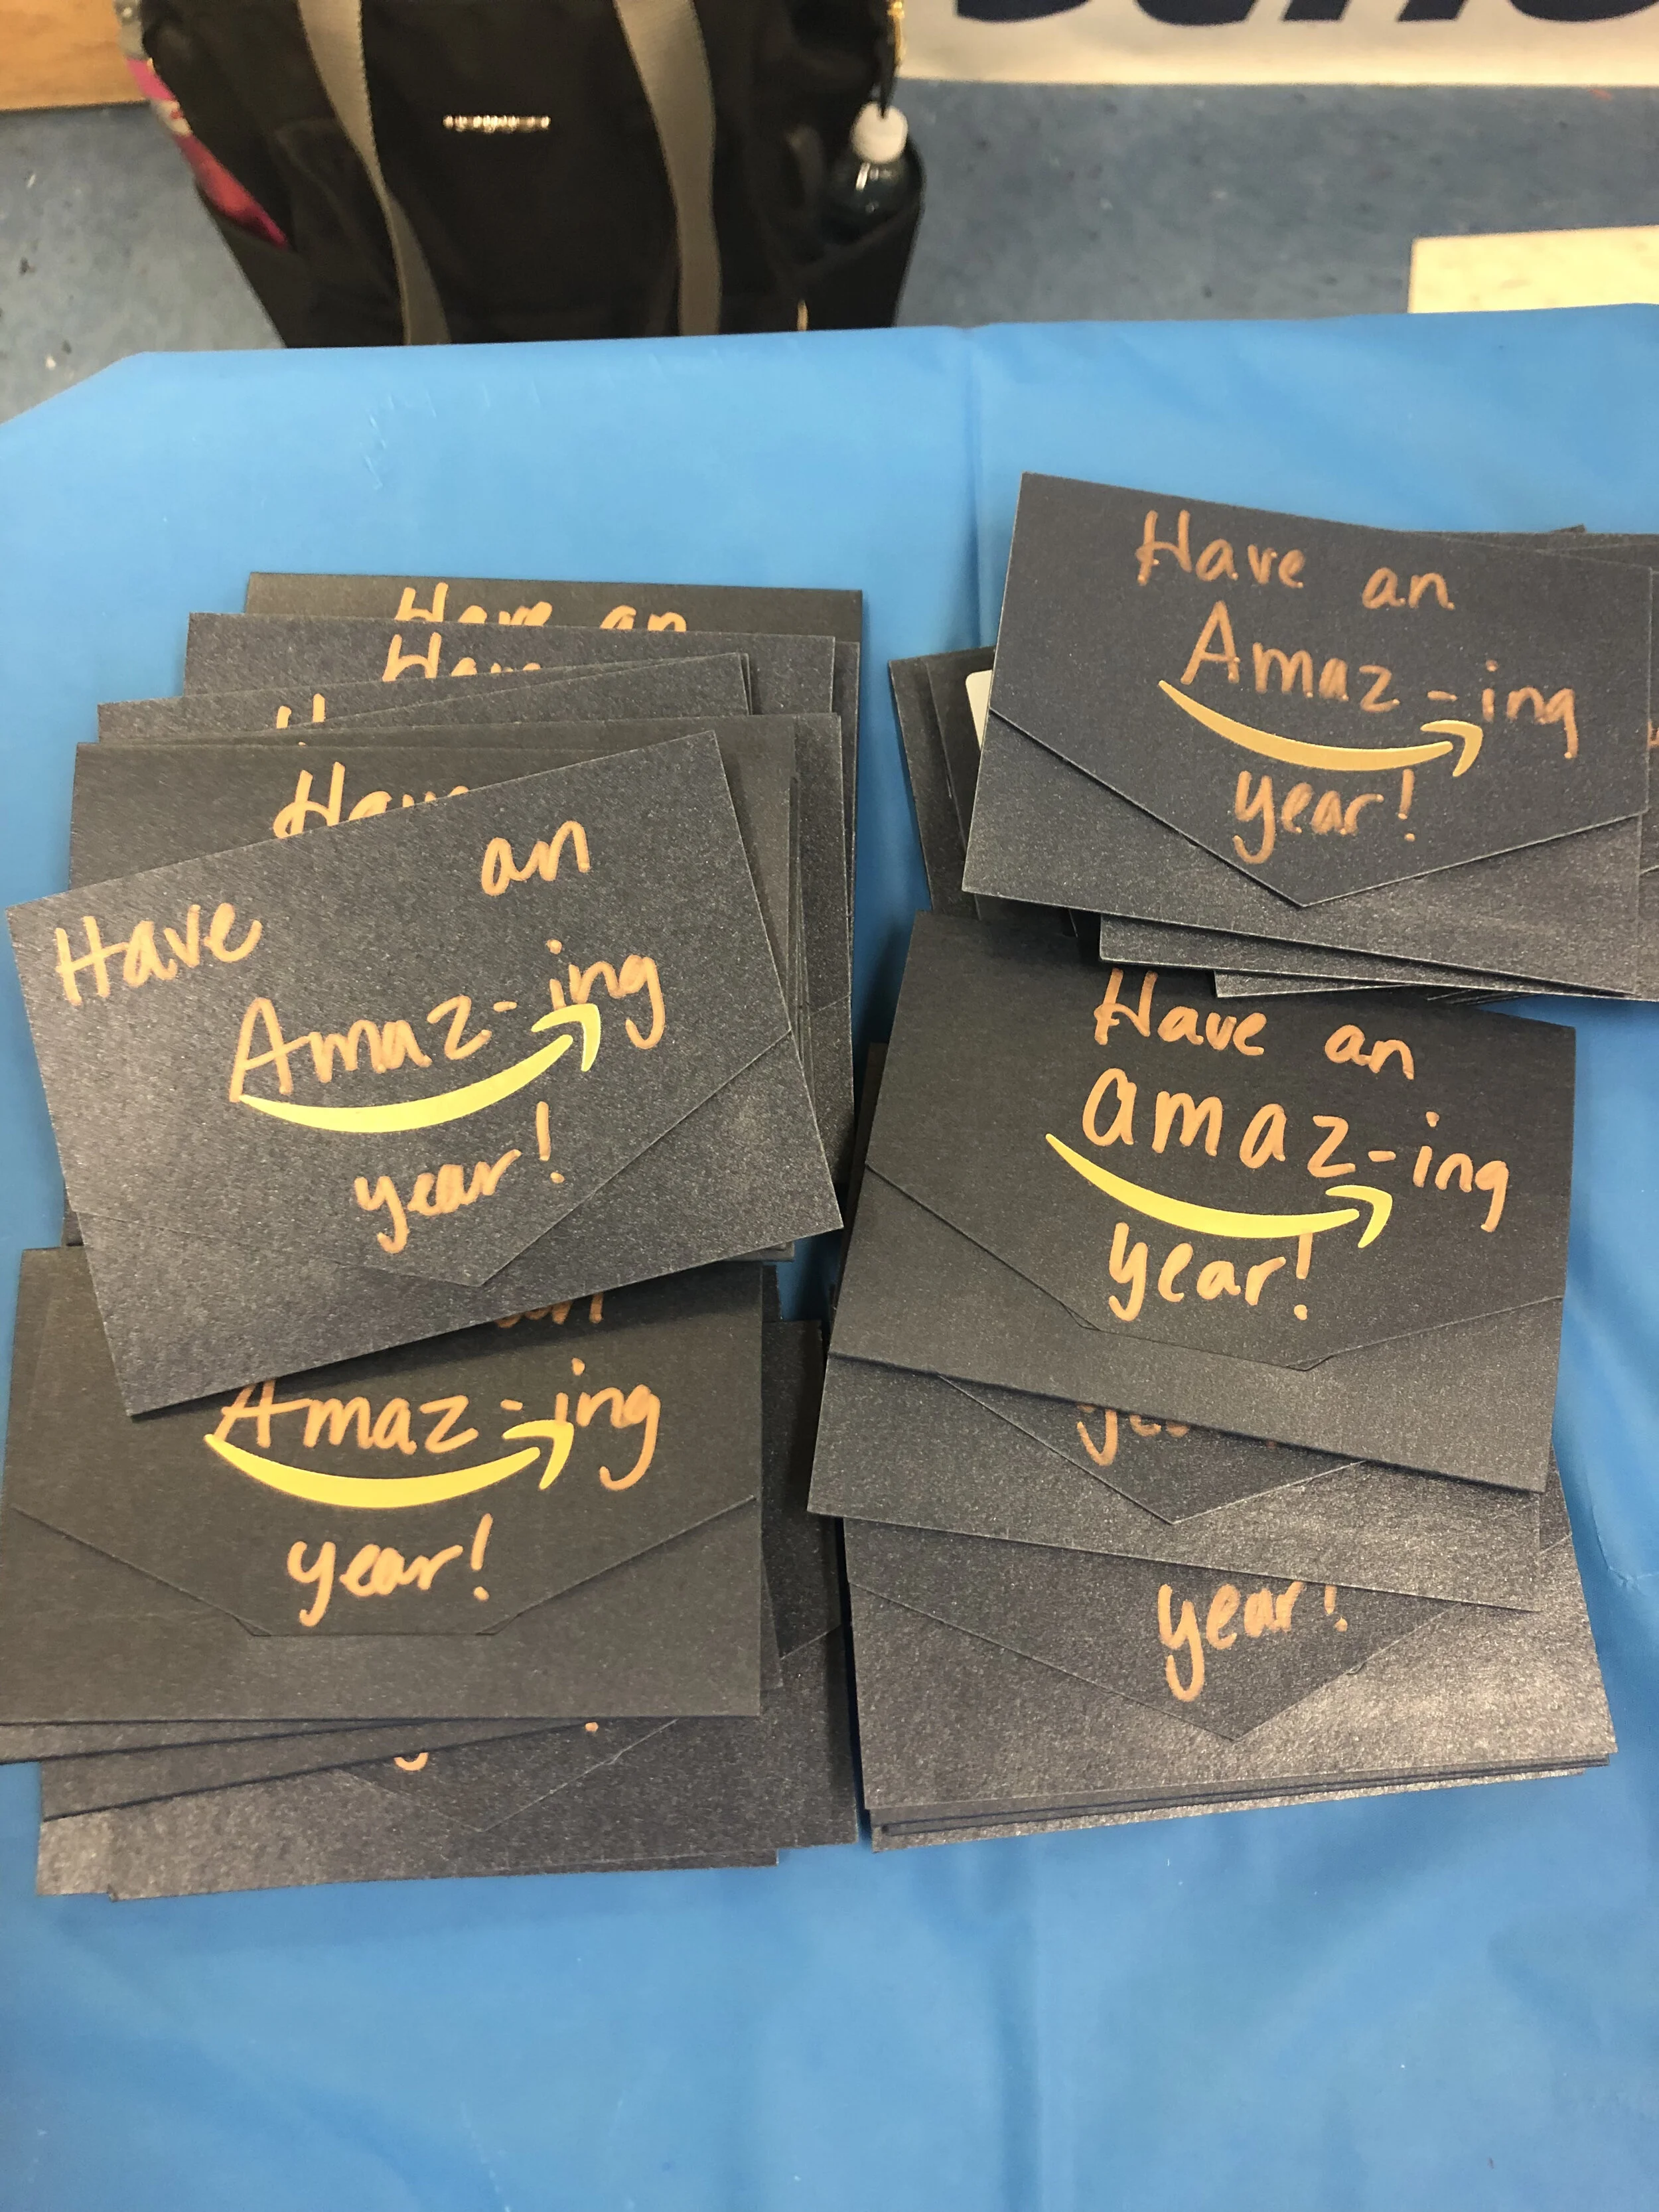 Have an
Have
Have
Have an
Amaz-ing
year!
Have an
Amaz-ing
year!
Have an
amaz-ing
year!
Amaz-ing
year!
year!